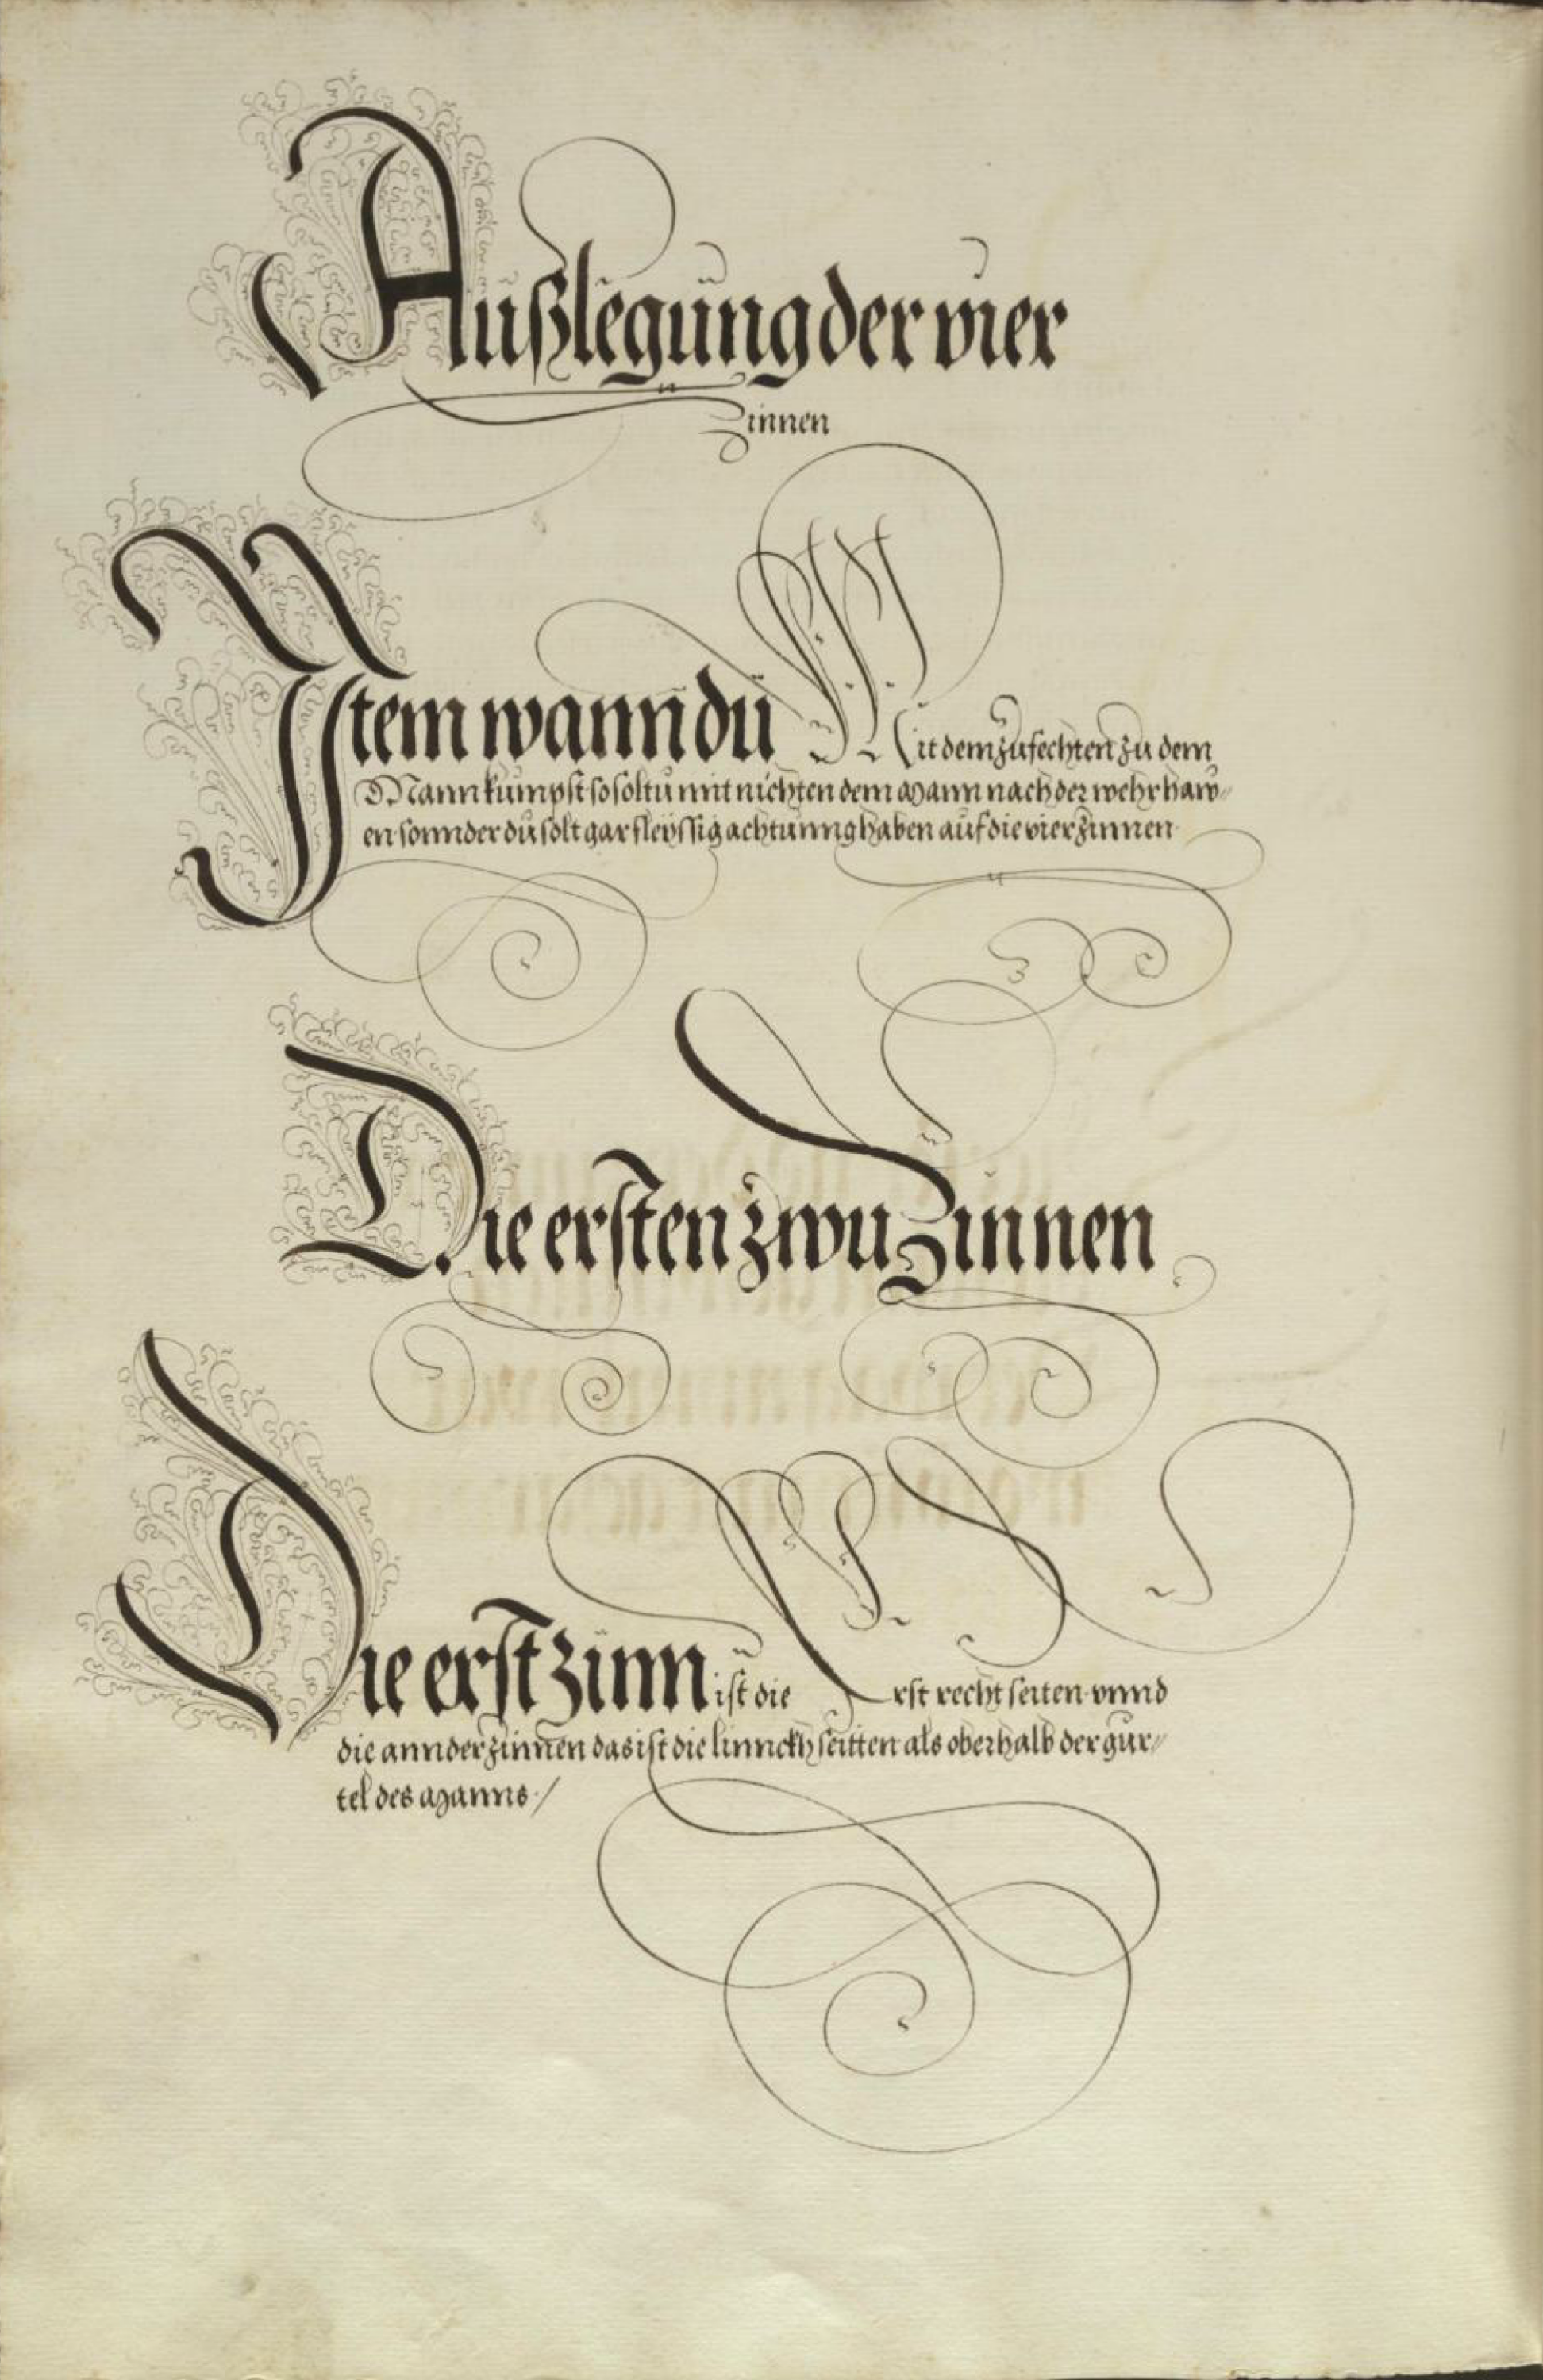 Außlegung der vier
Zinnen
Item wann du Mit dem zufechten zu dem
Mann kumpst so soltu mit nichten dem Mann nach der wehr haw⸗
en sonnder du solt gar fleyssig achtunng haben auf die vier zinnen
Die ersten zwu Zinnen
Die erst zinn ist die Erst recht seiten vnnd
die annder zinnen das ist die linnckh seitten als oberhalb der gür⸗
tel des Manns /